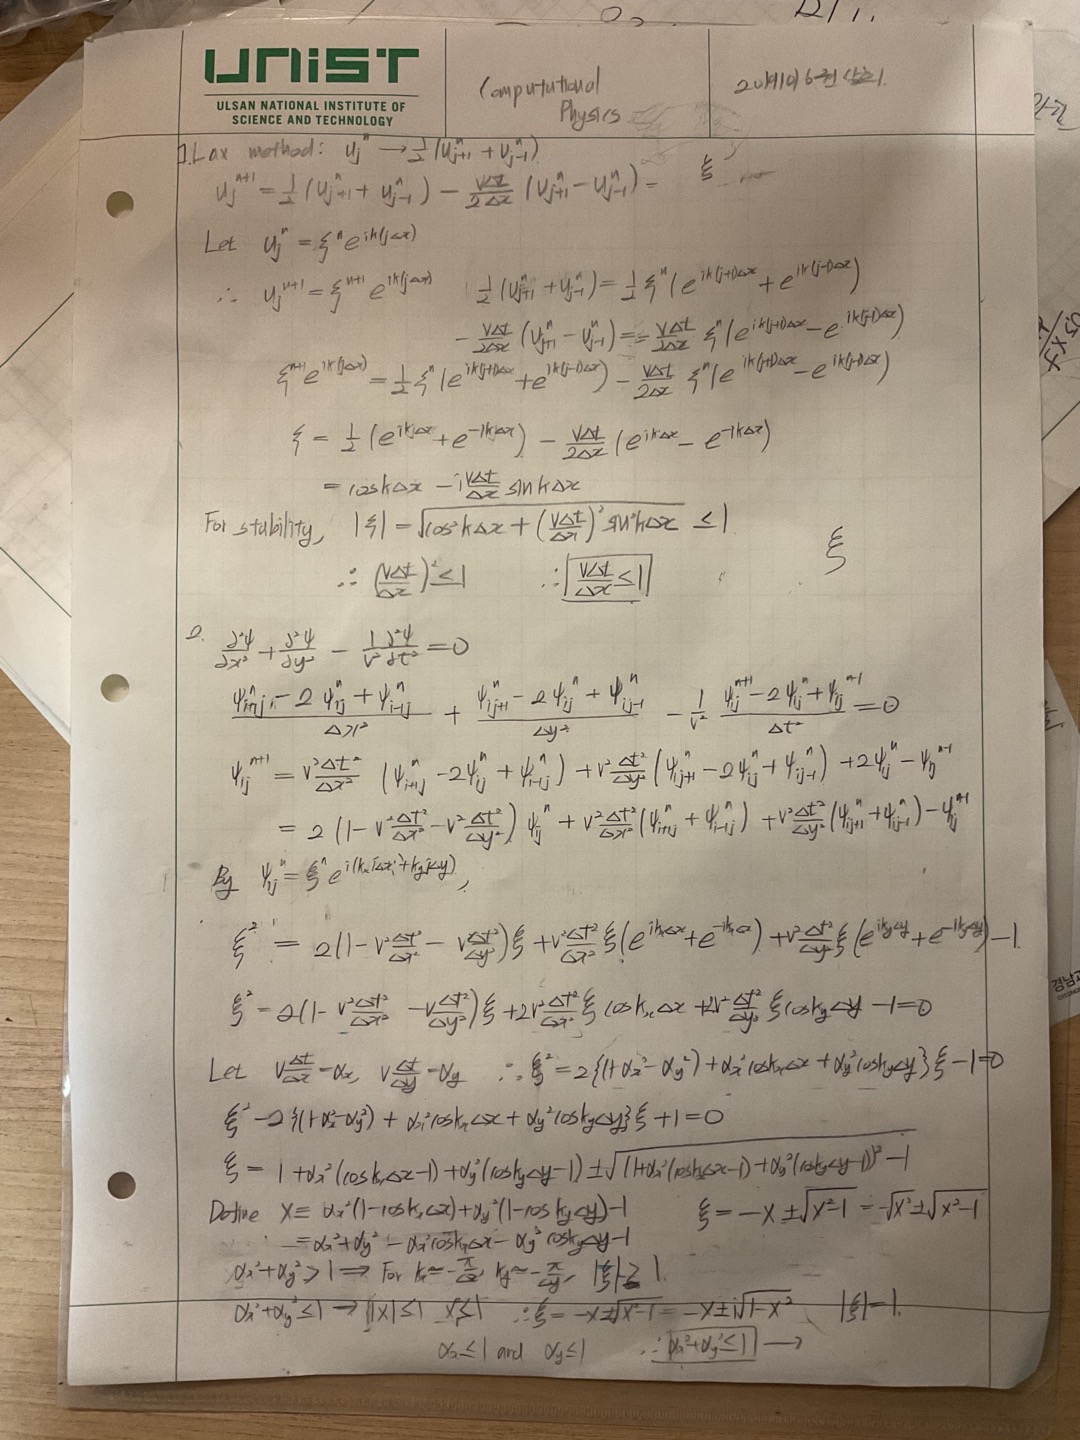 UNIST
ULSAN NATIONAL INSTITUTE OF
SCIENCE AND TECHNOLOGY
Computational
Physics
1. Lax method: u_j^n → 1/2 (u_{j+1}^n + u_{j-1}^n)
u_j^{n+1} = 1/2 (u_{j+1}^n + u_{j-1}^n) - vΔt/2Δx (u_{j+1}^n - u_{j-1}^n) =
ξ
Let u_j^n = ξ^n e^{ik(jΔx)}
∴ u_j^{n+1} = ξ^{n+1} e^{ik(jΔx)} 1/2 (u_{j+1}^n + u_{j-1}^n) = 1/2 ξ^n (e^{ik(j+1)Δx} + e^{ik(j-1)Δx})
- vΔt/2Δx (u_{j+1}^n - u_{j-1}^n) = - vΔt/2Δx ξ^n (e^{ik(j+1)Δx} - e^{ik(j-1)Δx})
ξ^{n+1} e^{ik(jΔx)} = 1/2 ξ^n (e^{ik(j+1)Δx} + e^{ik(j-1)Δx}) - vΔt/2Δx ξ^n (e^{ik(j+1)Δx} - e^{ik(j-1)Δx})
ξ = 1/2 (e^{ikΔx} + e^{-ikΔx}) - vΔt/2Δx (e^{ikΔx} - e^{-ikΔx})
= coskΔx - i vΔt/Δx sinkΔx
For stability, |ξ| = √(cos²kΔx + (vΔt/Δx)² sin²kΔx) ≤ 1
ξ
∴ (vΔt/Δx)² ≤ 1 ∴ vΔt/Δx ≤ 1
2. ∂²ψ/∂x² + ∂²ψ/∂y² - 1/v² ∂²ψ/∂t² = 0
(ψ_{i+1j}^n - 2ψ_{ij}^n + ψ_{i-1j}^n)/Δx² + (ψ_{ij+1}^n - 2ψ_{ij}^n + ψ_{ij-1}^n)/Δy² - 1/v² (ψ_{ij}^{n+1} - 2ψ_{ij}^n + ψ_{ij}^{n-1})/Δt² = 0
ψ_{ij}^{n+1} = v² Δt²/Δx² (ψ_{i+1j}^n - 2ψ_{ij}^n + ψ_{i-1j}^n) + v² Δt²/Δy² (ψ_{ij+1}^n - 2ψ_{ij}^n + ψ_{ij-1}^n) + 2ψ_{ij}^n - ψ_{ij}^{n-1}
= 2(1 - v² Δt²/Δx² - v² Δt²/Δy²) ψ_{ij}^n + v² Δt²/Δx² (ψ_{i+1j}^n + ψ_{i-1j}^n) + v² Δt²/Δy² (ψ_{ij+1}^n + ψ_{ij-1}^n) - ψ_{ij}^{n-1}
By ψ_{ij}^n = ξ^n e^{i(k_x iΔx + k_y jΔy)},
ξ² = 2(1 - v² Δt²/Δx² - v² Δt²/Δy²)ξ + v² Δt²/Δx² ξ(e^{ik_xΔx} + e^{-ik_xΔx}) + v² Δt²/Δy² ξ(e^{ik_yΔy} + e^{-ik_yΔy}) - 1
ξ² - 2(1 - v² Δt²/Δx² - v² Δt²/Δy²)ξ + 2v² Δt²/Δx² ξ cosk_xΔx + 2v² Δt²/Δy² ξ cosk_yΔy - 1 = 0
Let v Δt/Δx = α_x, v Δt/Δy = α_y ∴ ξ² = 2{(1+α_x² - α_y²) + α_x² cosk_xΔx + α_y² cosk_yΔy}ξ - 1 = 0
ξ² - 2{(1+α_x² - α_y²) + α_x² cosk_xΔx + α_y² cosk_yΔy}ξ + 1 = 0
ξ = 1 + α_x² (cosk_xΔx - 1) + α_y² (cosk_yΔy - 1) ± √((1+α_x² (cosk_xΔx - 1) + α_y² (cosk_yΔy - 1))² - 1)
Define X ≡ α_x² (1 - cosk_xΔx) + α_y² (1 - cosk_yΔy) - 1 ξ = -X ± √(X² - 1) = -√X² ± √(X² - 1)
= α_x² + α_y² - α_x² cosk_xΔx - α_y² cosk_yΔy - 1
α_x² + α_y² > 1 ⇒ For k_x = -π/Δx, k_y = -π/Δy, |ξ| ≥ 1.
α_x² + α_y² ≤ 1 → |X| ≤ 1 X² ≤ 1 ∴ ξ = -X ± √(X² - 1) = -X ± i√(1 - X²) |ξ| = 1.
α_x ≤ 1 and α_y ≤ 1 ∴ α_x² + α_y² ≤ 1 →
경남